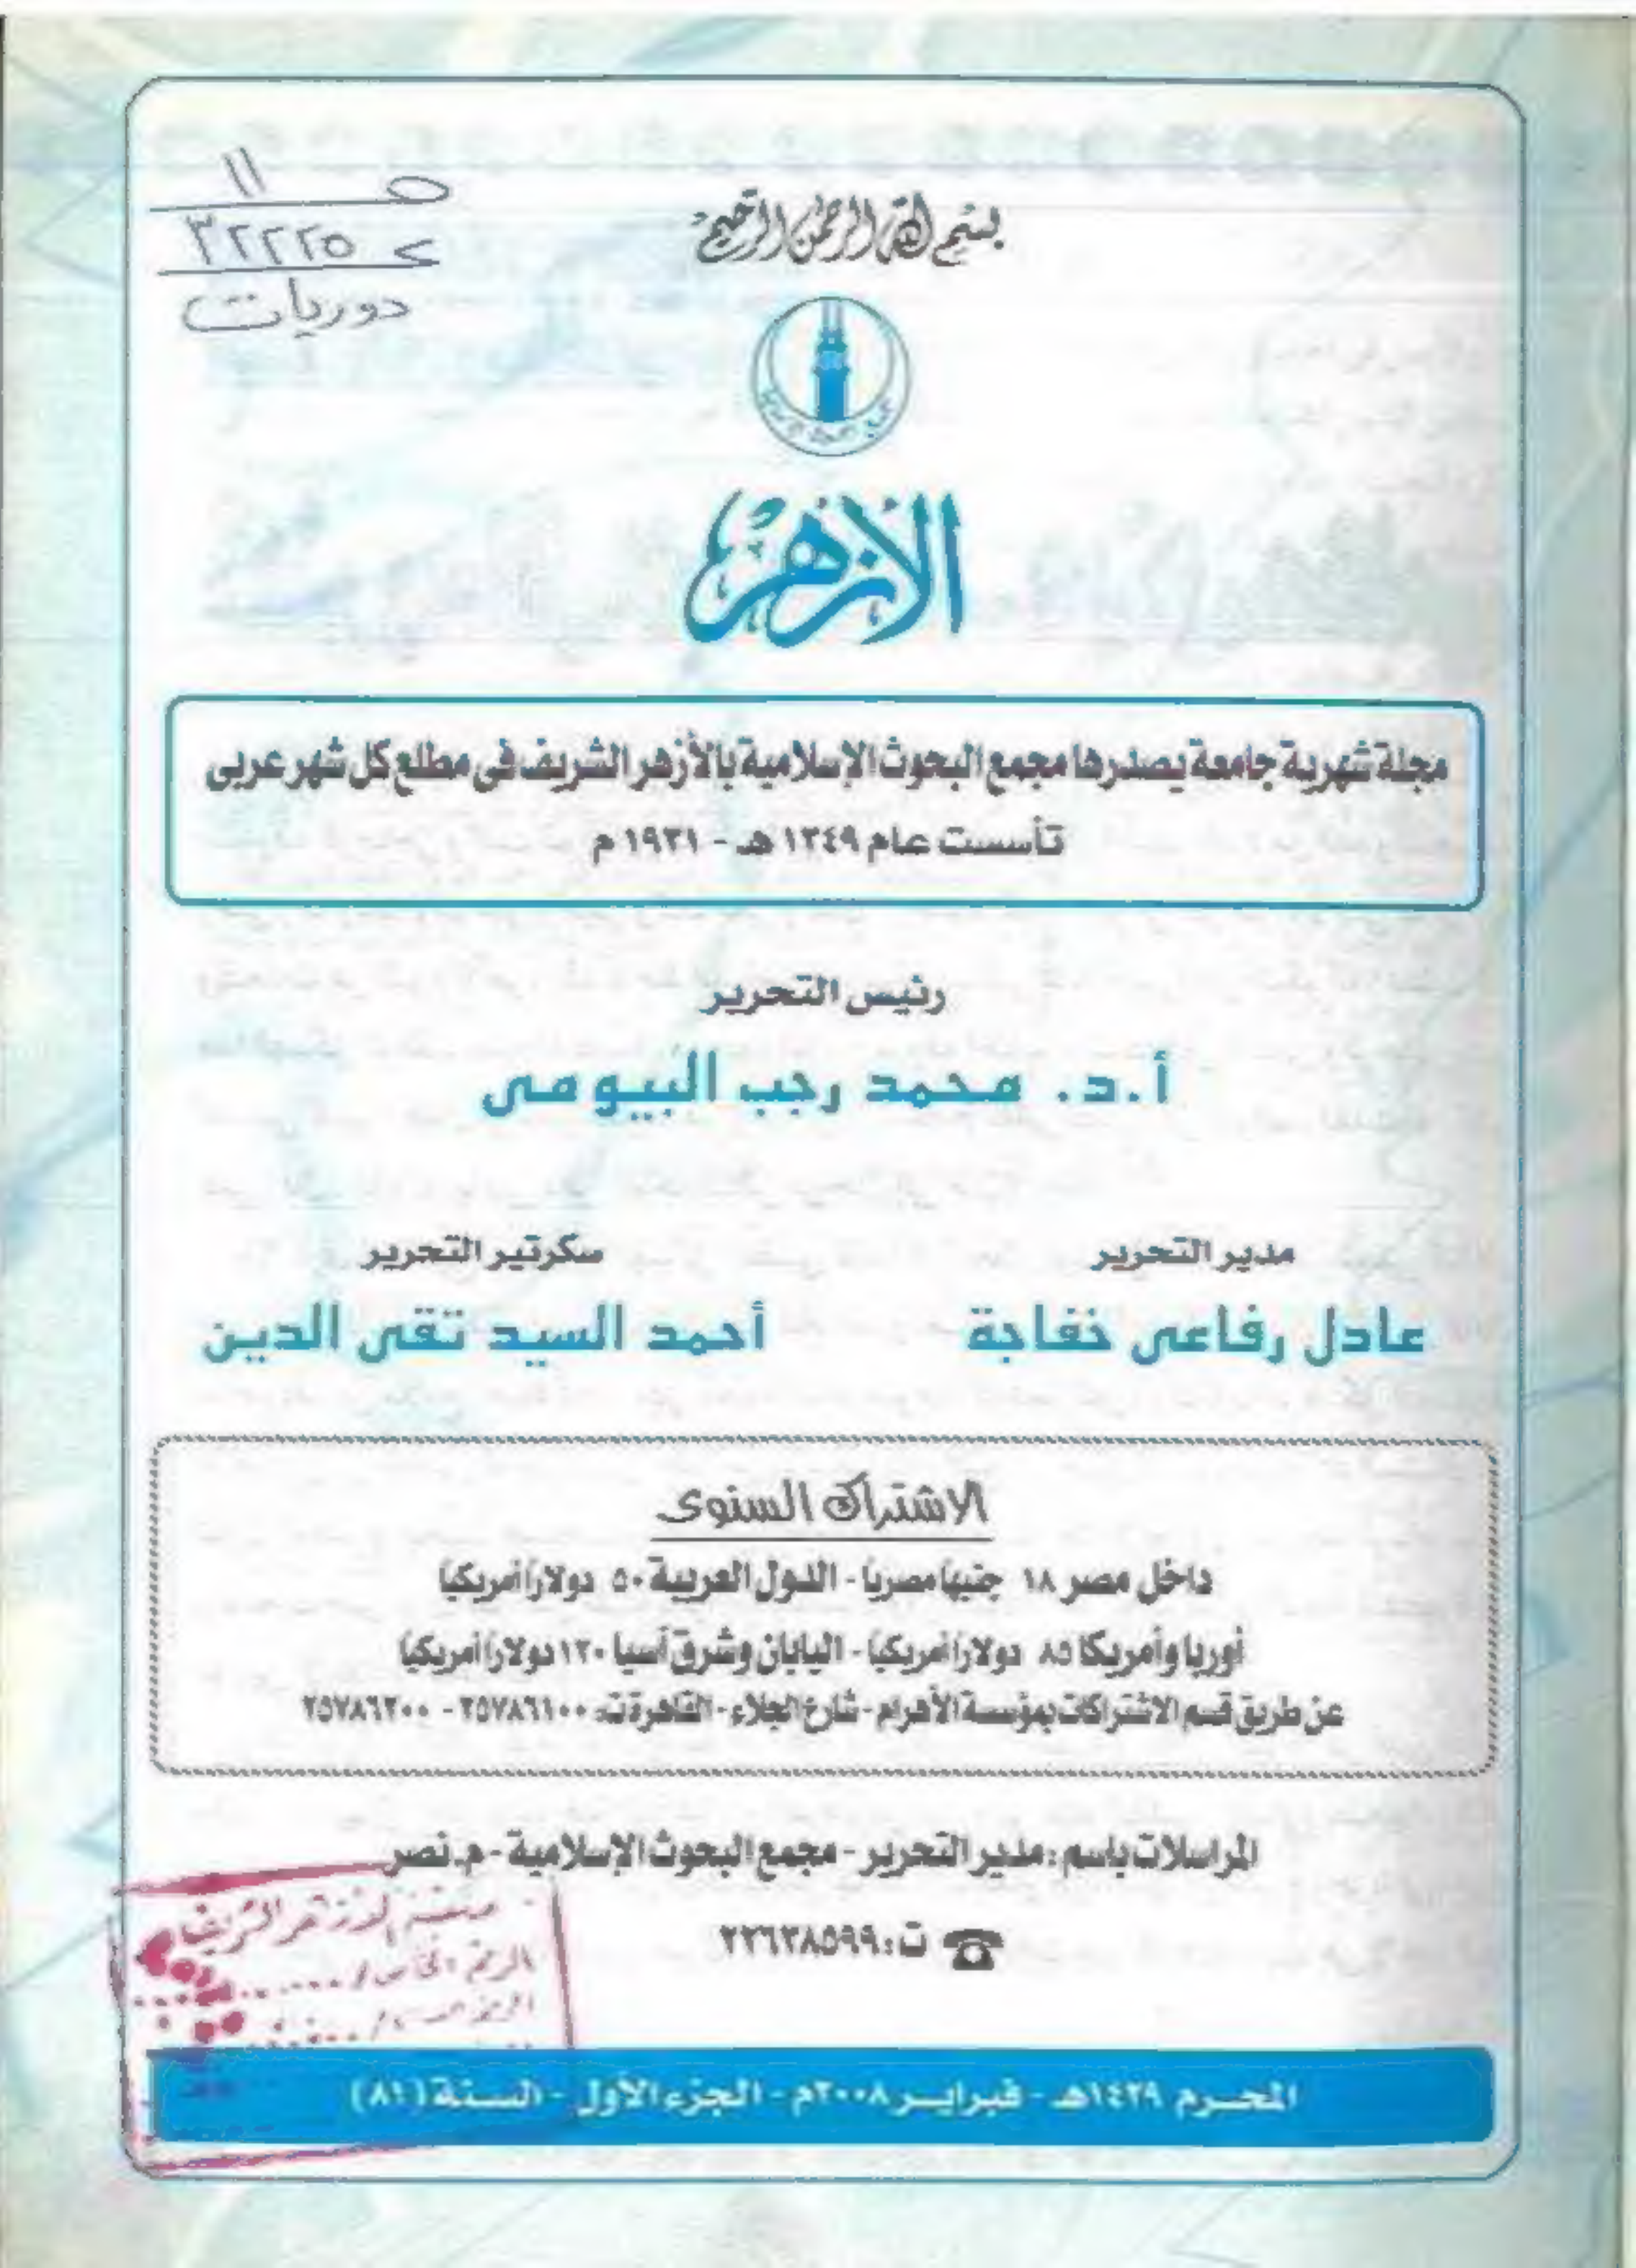 ص ١١
٣٢٢٢٥
دوريات
بسم الله الرحمن الرحيم
الأزهر
مجلة شهرية جامعة يصدرها مجمع البحوث الإسلامية بالأزهر الشريف فى مطلع كل شهر عربى
تأسست عام ١٣٤٩ هـ - ١٩٣١ م
رئيس التحرير
أ.د. محمد رجب البيومى
مدير التحرير
سكرتير التحرير
عادل رفاعى خفاجة
أحمد السيد تقى الدين
الاشتراك السنوى
داخل مصر ١٨ جنيها مصريا - الدول العربية ٥٠ دولاراً أمريكيا
أوربا وأمريكا ٨٥ دولاراً أمريكيا - اليابان وشرق آسيا ١٢٠ دولاراً أمريكيا
عن طريق قسم الاشتراكات بمؤسسة الأهرام - شارع الجلاء - القاهرة ت: ٢٥٧٨٦١٠٠ - ٢٥٧٨٦٢٠٠
المراسلات باسم: مدير التحرير - مجمع البحوث الإسلامية - م. نصر
ت: ٢٢٦٣٨٥٩٩
الأزهر الشريف
الرقم الخاص /
المحرم ١٤٢٩هـ - فبراير ٢٠٠٨م - الجزء الأول - السنة (٨١)